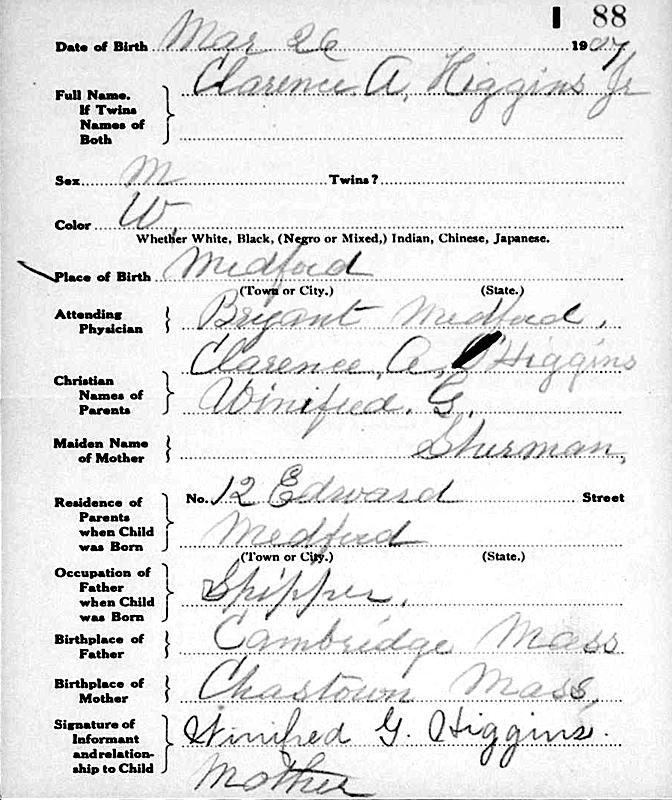 88
Date of Birth Mar 26 1907
Clarence A, Higgins Jr
Full Name.
If Twins
Names of
Both
Sex M Twins?
Color W.
Whether White, Black, (Negro or Mixed,) Indian, Chinese, Japanese.
Place of Birth Medford
(Town or City.) (State.)
Attending
Physician Bryant Medford,
Clarence, A, Higgins
Christian
Names of
Parents Winified. G.
Maiden Name
of Mother Sherman,
Residence of
Parents
when Child
was Born
No. 12 Edward Street
Medford
(Town or City.) (State.)
Occupation of
Father
when Child
was Born
Shipper,
Birthplace of
Father Cambridge Mass
Birthplace of
Mother Chastown Mass,
Signature of
Informant
and relation-
ship to Child
Winifred G. Higgins.
Mother